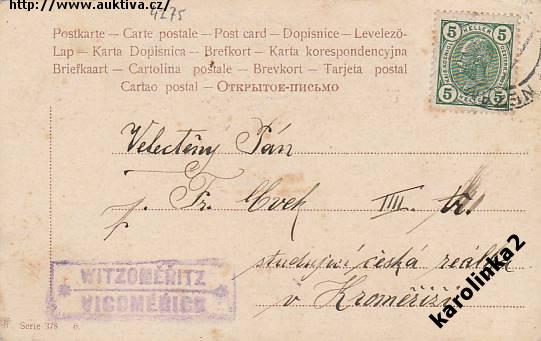 http://www.auktiva.cz/
4275
Postkarte — Carte postale — Post card — Dopisnice — Levelező-
Lap — Karta Dopisnica — Brefkort — Karta korespondencyjna
Briefkaart — Cartolina postale — Brevkort — Tarjeta postal
Cartao postal — Открытое-письмо
5 HELLER 5
5 HELLER 5
Velectěný Pán
p. Fr. Cvek III. tř.
studující česká reálka
v Kroměříži
WITZOMĚŘITZ
VICOMĚŘICE
Serie 378 6.
karolinka2